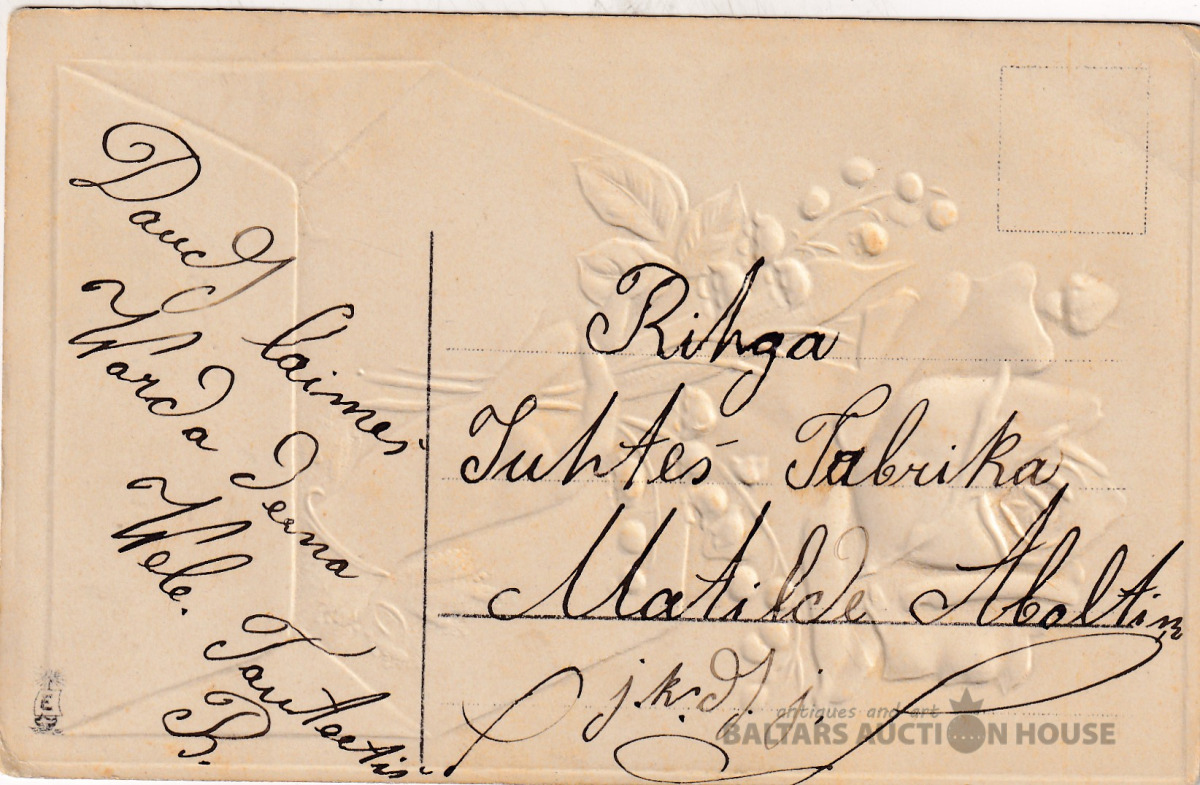 Daudz laimes
Warda Deena
Wele. Tauteetis
R.
Rihga
Juhtes Fabrika
Matilde Aboltin
j. k. dz.
antiques and art
BALTARS AUCTION HOUSE